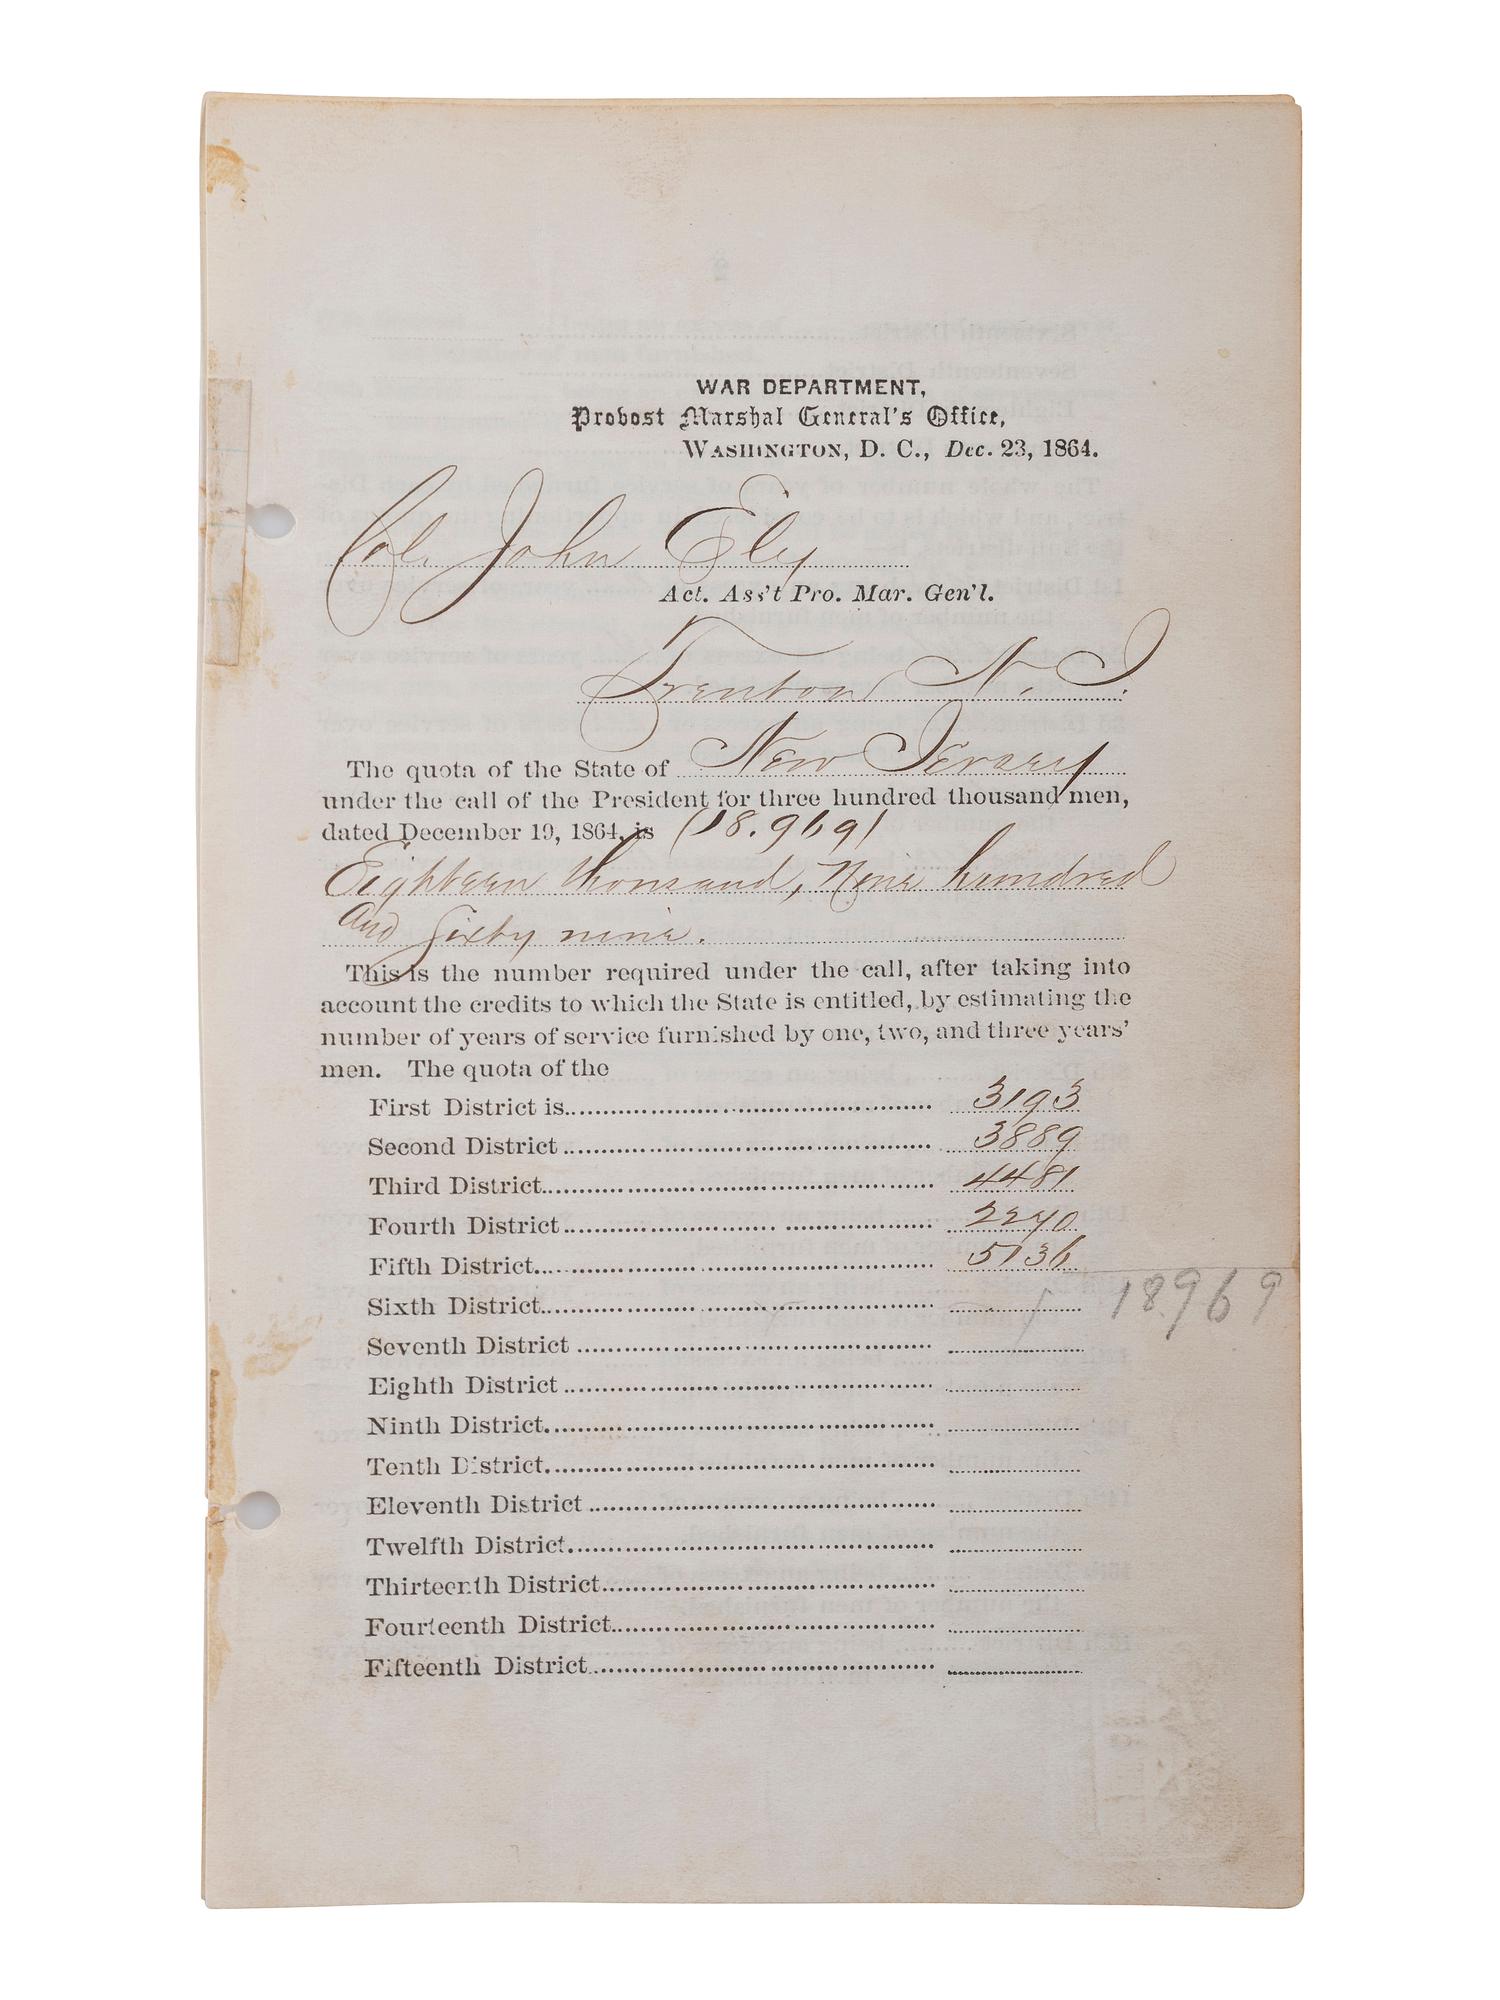 WAR DEPARTMENT,
Provost Marshal General's Office,
WASHINGTON, D. C., Dec. 23, 1864.
Col. John Ely
Act. Ass't Pro. Mar. Gen'l.
Trenton N. J.
The quota of the State of New Jersey
under the call of the President for three hundred thousand men,
dated December 19, 1864, is (18.969)
Eighteen thousand, Nine hundred
and sixty nine.
This is the number required under the call, after taking into
account the credits to which the State is entitled, by estimating the
number of years of service furnished by one, two, and three years'
men. The quota of the
First District is 3193
Second District 3889
Third District 4481
Fourth District 2270
Fifth District 5136
Sixth District 18969
Seventh District
Eighth District
Ninth District
Tenth District
Eleventh District
Twelfth District
Thirteenth District
Fourteenth District
Fifteenth District